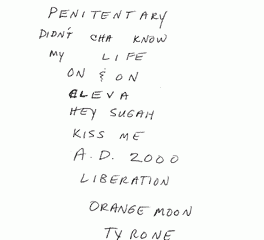 PENITENTARY
DIDN'T CHA KNOW
MY LIFE
ON & ON
CLEVA
HEY SUGAH
KISS ME
A.D. 2000
LIBERATION
ORANGE MOON
TYRONE